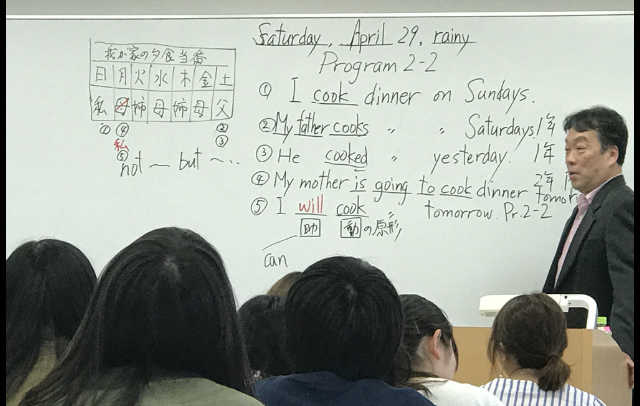 我が家の夕食当番
日 月 火 水 木 金 土
私 母 姉 母 姉 母 父
① ④ ②
私 ③
⑤
not ～ but ～...
Saturday, April 29, rainy
Program 2-2
① I cook dinner on Sundays.
② My father cooks 〃 〃 Saturdays 1年
③ He cooked 〃 yesterday. 1年
④ My mother is going to cook dinner tomor
2年
⑤ I will cook tomorrow. Pr.2-2
助 動の原形
can